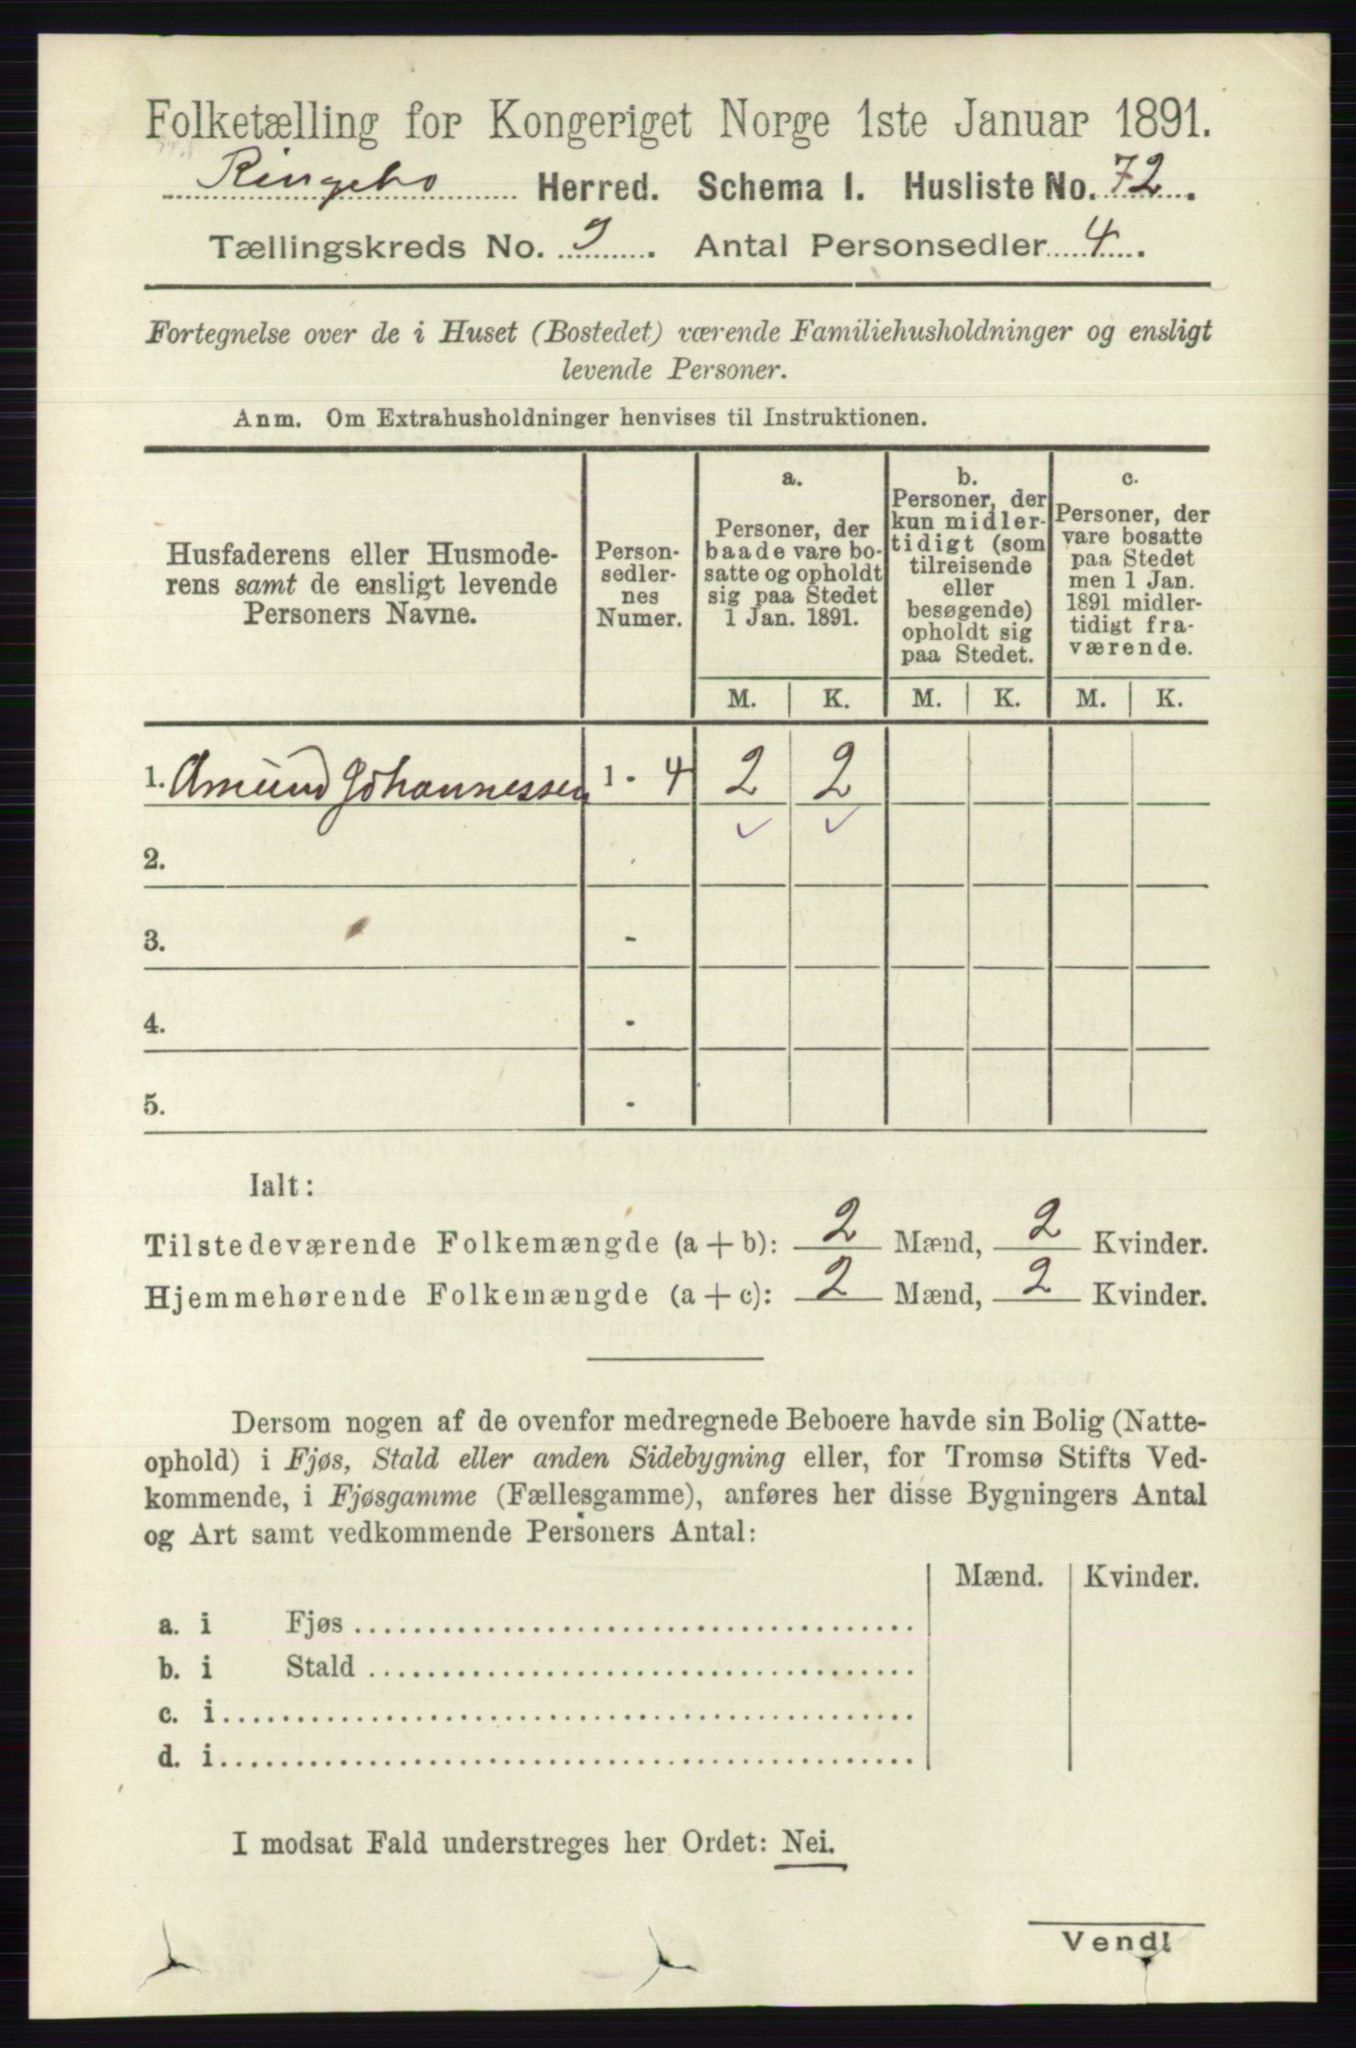 Folketælling for Kongeriget Norge 1ste Januar 1891.
Ringebo Herred. Schema I. Husliste No. 72.
Tællingskreds No. 9. Antal Personsedler 4.
Fortegnelse over de i Huset (Bostedet) værende Familiehusholdninger og ensligt
levende Personer.
Anm. Om Extrahusholdninger henvises til Instruktionen.
Husfaderens eller Husmode-
rens samt de ensligt levende
Personers Navne.
Person-
sedler-
nes
Numer.
a.
Personer, der
baade vare bo-
satte og opholdt
sig paa Stedet
1 Jan. 1891.
b.
Personer, der
kun midler-
tidigt (som
tilreisende
eller
besøgende)
opholdt sig
paa Stedet.
c.
Personer, der
vare bosatte
paa Stedet
men 1 Jan.
1891 midler-
tidigt fra-
værende.
M. K. M. K. M. K.
1. Amund Johannessen 1 - 4 2 2
2.
3. -
4. -
5. -
Ialt:
Tilstedeværende Folkemængde (a + b): 2 Mænd, 2 Kvinder.
Hjemmehørende Folkemængde (a + c): 2 Mænd, 2 Kvinder.
Dersom nogen af de ovenfor medregnede Beboere havde sin Bolig (Natte-
ophold) i Fjøs, Stald eller anden Sidebygning eller, for Tromsø Stifts Ved-
kommende, i Fjøsgamme (Fællesgamme), anføres her disse Bygningers Antal
og Art samt vedkommende Personers Antal:
Mænd. Kvinder.
a. i Fjøs
b. i Stald
c. i
d. i
I modsat Fald understreges her Ordet: Nei.
Vend!